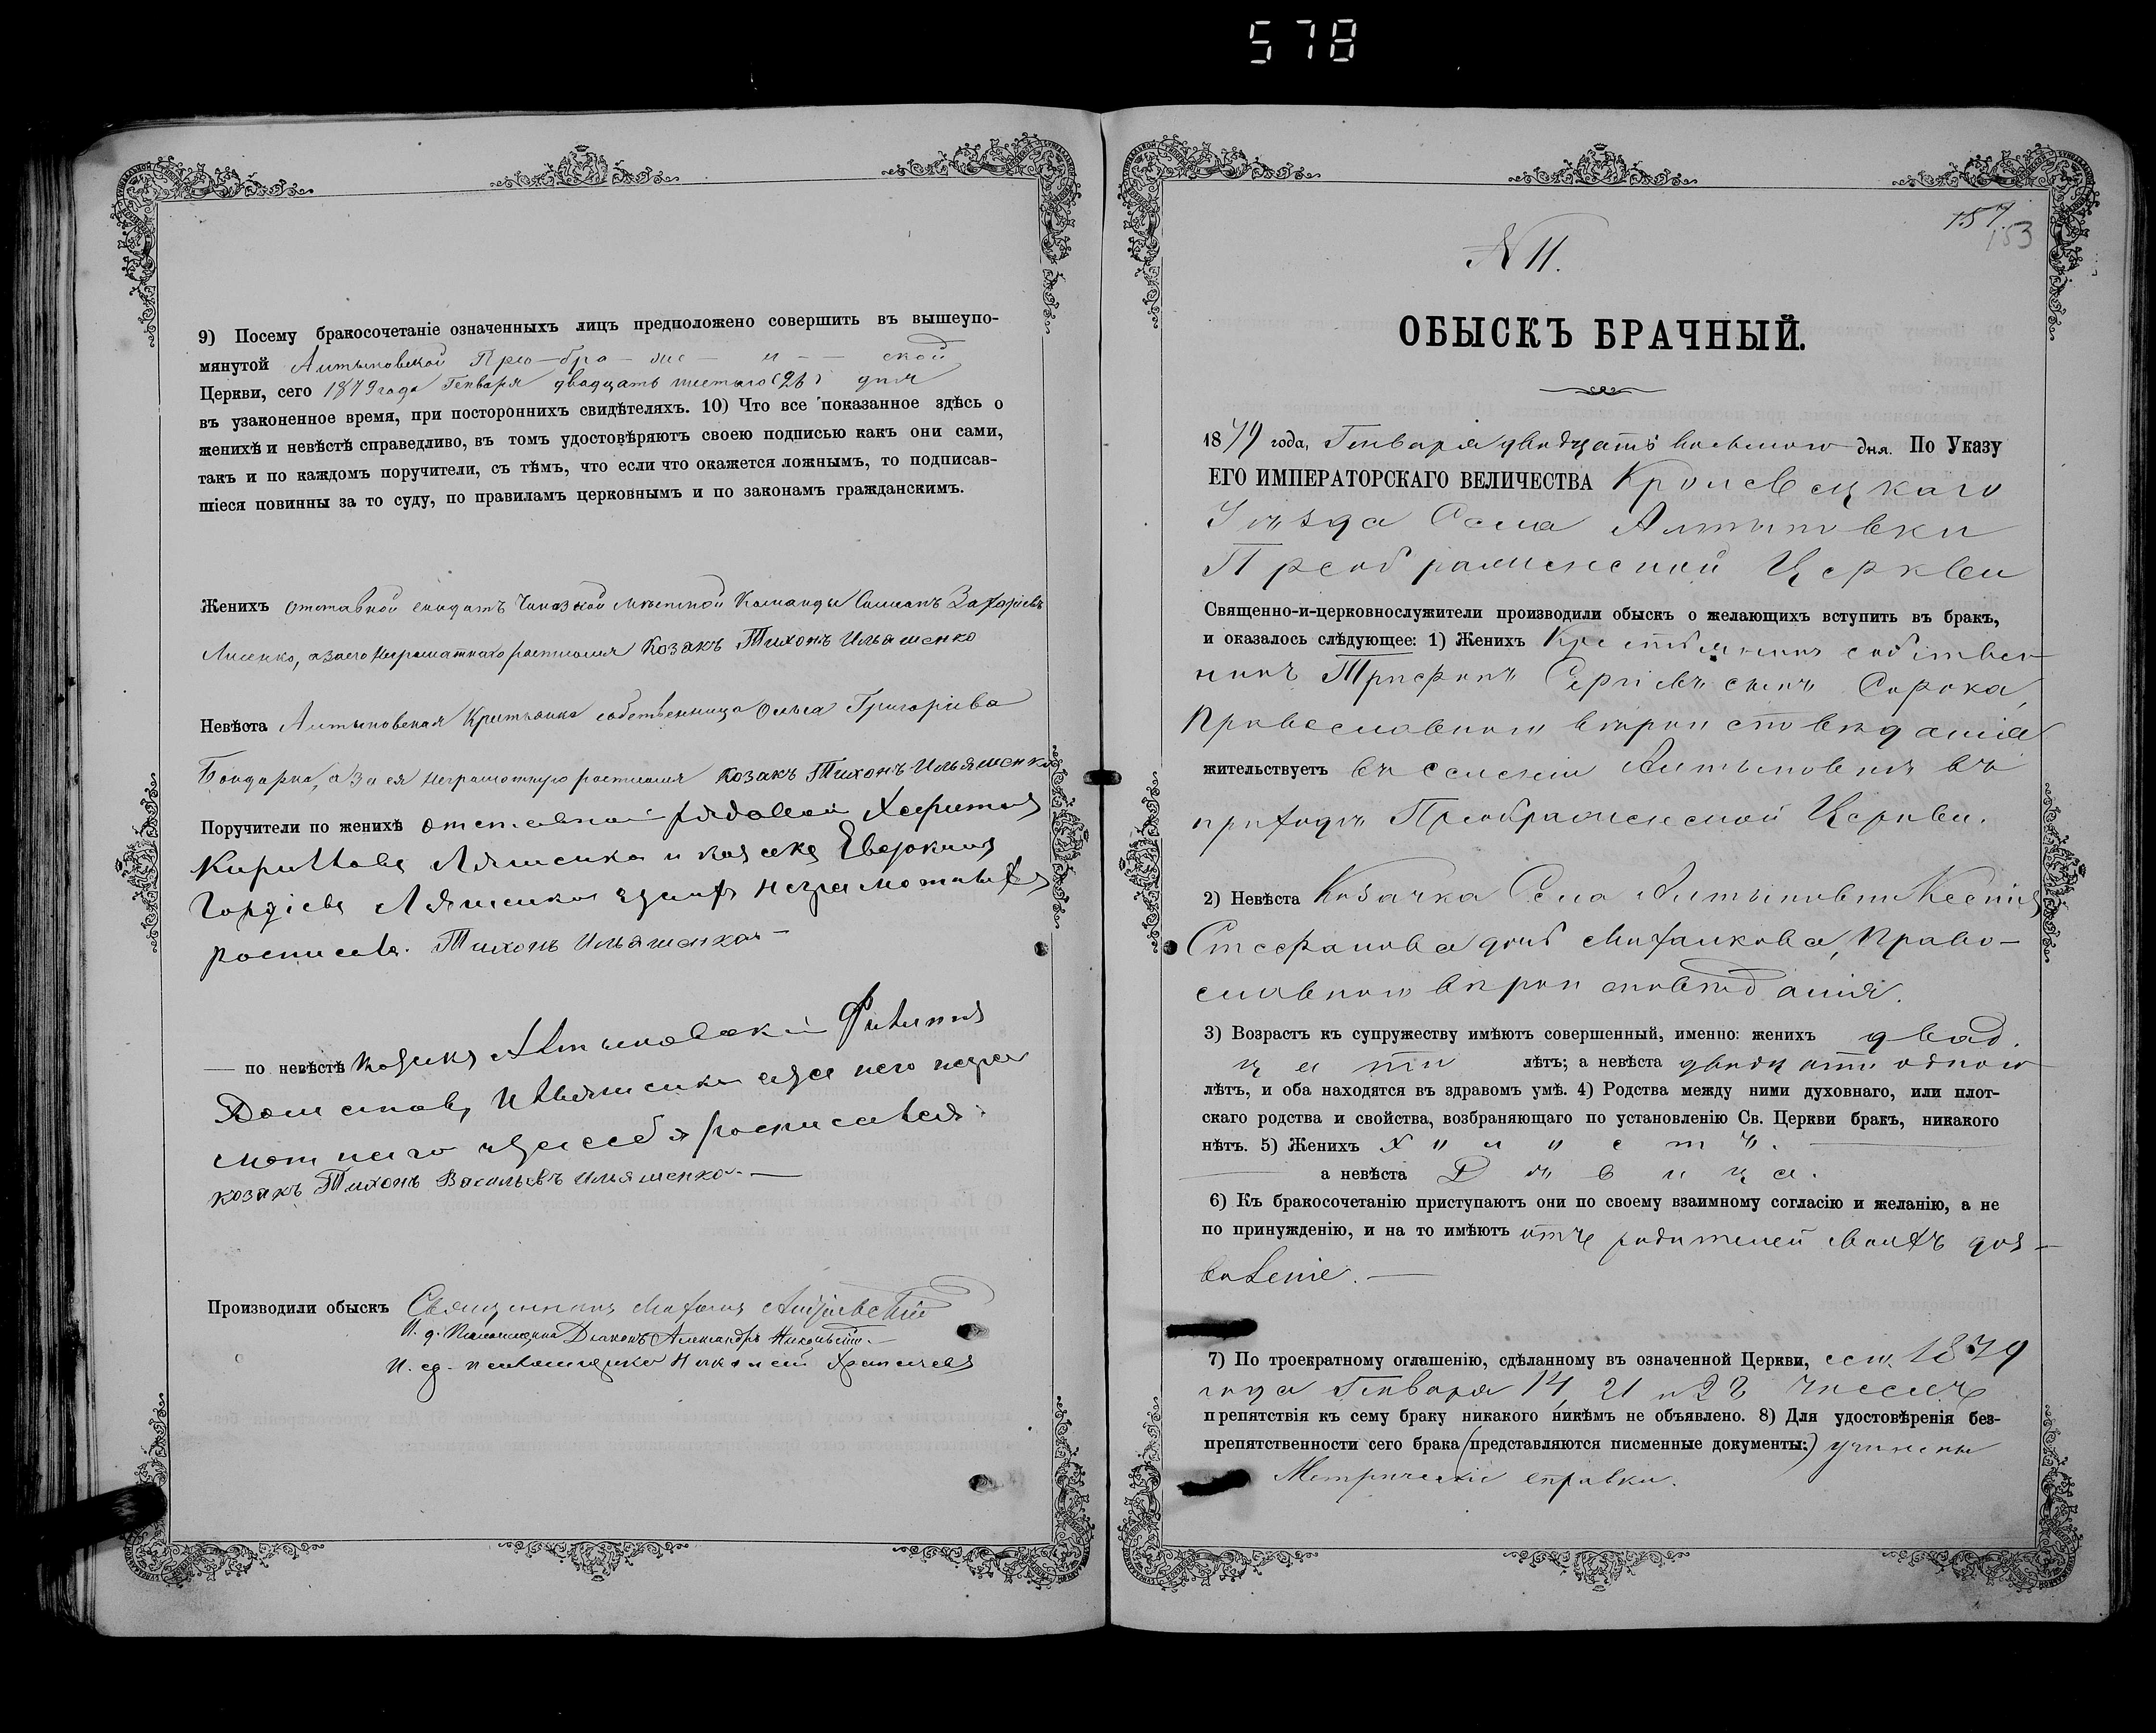 578
9) Посему бракосочетаніе означенныхъ лицъ предположено совершить въ вышеупо-
мянутой Алтыновской Прео-бра-же-н--ской
Церкви, сего 1879 года Генваря двадцать шестого (26) дня
въ узаконенное время, при постороннихъ свидѣтеляхъ. 10) Что все показанное здѣсь о
женихѣ и невѣстѣ справедливо, въ томъ удостовѣряютъ своею подписью какъ они сами,
такъ и по каждомъ поручители, съ тѣмъ, что если что окажется ложнымъ, то подписав-
шіеся повинны за то суду, по правиламъ церковнымъ и по законамъ гражданскимъ.
Женихъ отставной солдатъ мѣстной Команды Захаріевъ
Лисенко, а за его неграматнаго росписался Козакъ Тихонъ Ильяшенко
Невѣста Алтыновская Крестьянка собственница Ольга Григоріева
Бондарка, а за ея неграмотную росписался козакъ Тихонъ Ильяшенко
Поручители по женихѣ отставной рядовой Харитонъ
Кирилловъ Ляшенко и козакъ Евдокимъ
Гордіевъ Ляшенко а за ихъ неграмотныхъ
росписалъ. Тихонъ Ильяшенко —
— по невѣстѣ козакъ Алтыновскій Филиппъ
Ильяшенко а за него негра
мотнаго и за себя росписался
козакъ Тихонъ Васильевъ Ильяшенко. —
Производили обыскъ Священникъ
И. д. Псаломщика Діаконъ Александръ
И. д. псаломщика Николай
157.
153
N 11.
ОБЫСКЪ БРАЧНЫЙ.
1879 года, Генваря двадцать восьмого дня. По Указу
ЕГО ИМПЕРАТОРСКАГО ВЕЛИЧЕСТВА Кролевецкаго
Уѣзда Села Алтыновки
Преображенской Церкви
Священно-и-церковнослужители производили обыскъ о желающихъ вступить въ бракъ,
и оказалось слѣдующее: 1) Женихъ Крестьянинъ собствен-
никъ Трифонъ Сергіевъ сынъ Сорока,
Православного вѣроисповѣданія
жительствуетъ въ селеніи Алтыновкѣ въ
приходѣ Преображенской Церкви.
2) Невѣста Козачка Села Алтыновки Ксенія
Стефанова дочь Михалкова, Право-
славного вѣроисповѣданія.
3) Возрастъ къ супружеству имѣютъ совершенный, именно: женихъ двад.
цати лѣтъ; а невѣста двадцати одного
лѣтъ, и оба находятся въ здравомъ умѣ. 4) Родства между ними духовнаго, или плот-
скаго родства и свойства, возбраняющаго по установленію Св. Церкви бракъ, никакого
нѣтъ. 5) Женихъ Х о л о с т ъ. —
— а невѣста Д ѣ в и ц а.
6) Къ бракосочетанію приступаютъ они по своему взаимному согласію и желанію, а не
по принужденію, и на то имѣютъ отъ родителей своихъ доз-
воленіе. —
7) По троекратному оглашенію, сдѣланному въ означенной Церкви, сего 1879
года Генваря 14, 21 и 28 чиселъ
препятствія къ сему браку никакого никѣмъ не объявлено. 8) Для удостовѣренія без-
препятственности сего брака (представляются писменные документы:) учинены
Метрическіе справки.